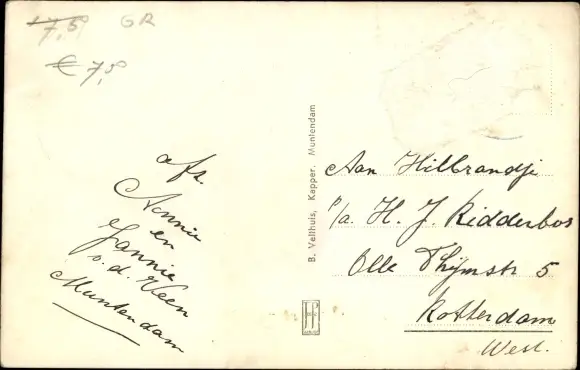 7,5 GR
€ 7,5
afz.
Annie
en
Jannie
v. d. Veen
Muntendam
B. Velthuis, Kapper, Muntendam
Aan Hilbrandje
p/a. H. J. Ridderbos
Olle Thijmstr 5
Rotterdam
West.